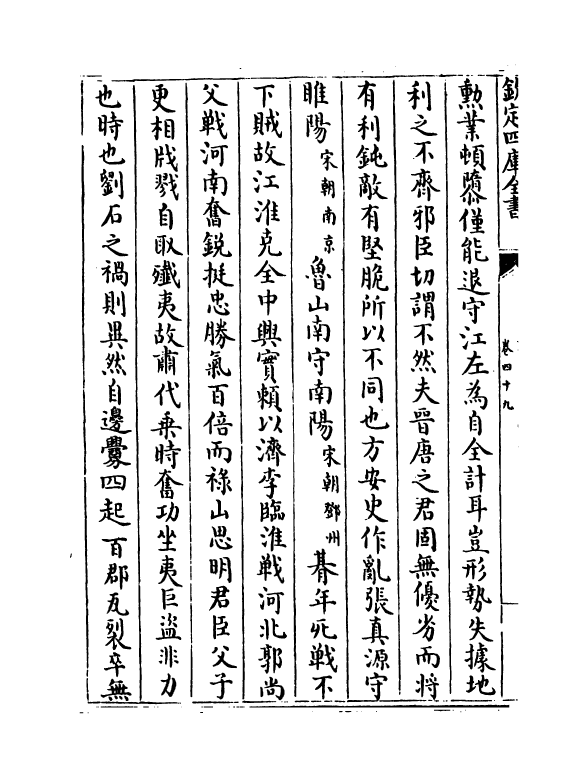 欽定四庫全書
卷四十九
勲業頓隳僅能退守江左為自全計耳豈形勢失據地
利之不齊邪臣切謂不然夫晉唐之君固無優劣而將
有利鈍敵有堅脆所以不同也方安史作亂張真源守
睢陽宋朝南京魯山南守南陽宋朝鄧州朞年死戰不
下賊故江淮克全中興實賴以濟李臨淮戰河北郭尚
父戰河南奮鋭挺忠勝氣百倍而祿山思明君臣父子
更相戕戮自取殲夷故肅代乗時奮功坐夷巨盜非力
也時也劉石之禍則異然自邊釁四起百郡瓦裂卒無